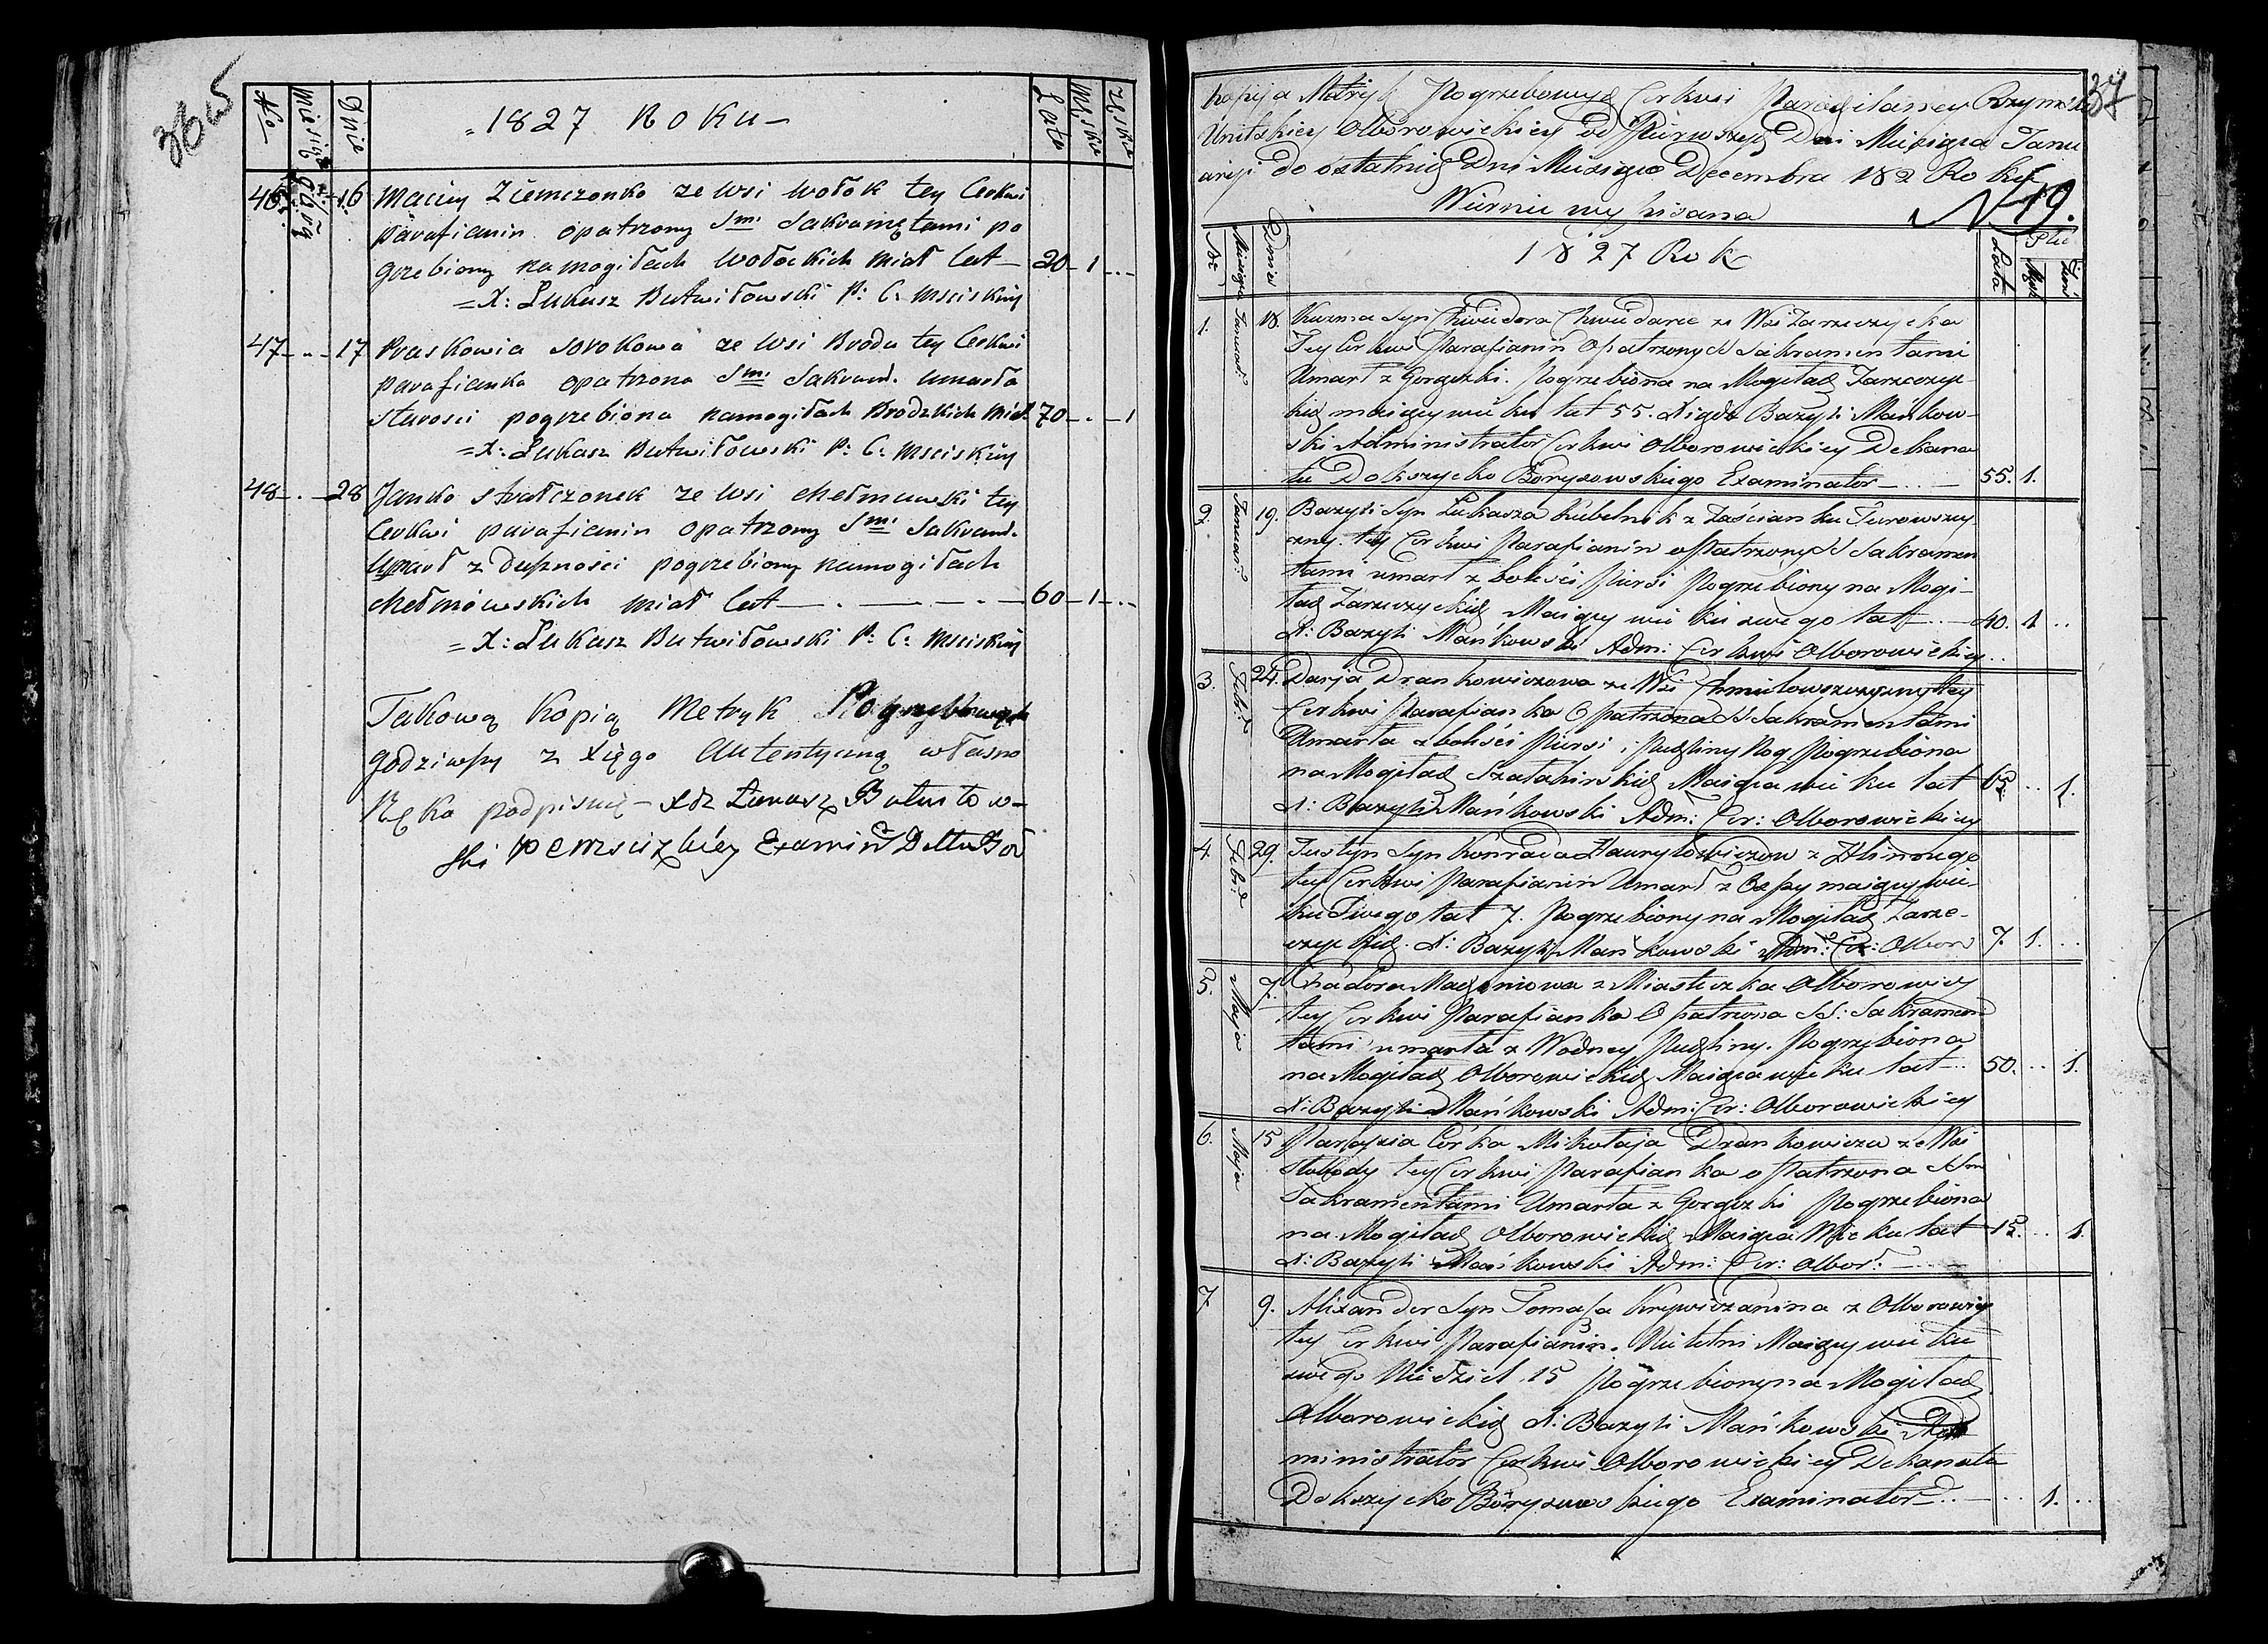 36 об
No
Miesiąc
Dnia
= 1827 Roku –
Lata
Męska
Żeska
46 16 Maciey Ziemczonko ze wsi Wołok tey Cerkwi
parafianin opatrzony Smi Sakramętami po
grzebiony na mogiłach Wołockich miał lat — 20 – 1 - ..
= X: Łukasz Butwiłowski P: C: Msciskiey
47 – .. – 17 Praskowia Sorokowa ze wsi Brodu tey Cerkwi
parafianka opatrzona Smi Sakram. umarła
starosci pogrzebiona na mogiłach Brodzkich miał. 70 – . – 1
= X: Łukasz Butwiłowski P: C: Msciskiey
48 – . – 28 Janko Strałczonek ze wsi Chełmowski tey
Cerkwi parafianin opatrzony Smi Sakram.
Umarł z Duszności pogrzebiony na mogiłach
Chełmowskich miał lat — . — . — . — 60 – 1 - ..
= X: Łukasz Butwiłowski P: C: Msciskiey
Takową Kopią Metryk Pogrzebowych
godziwszy z xięgo Autentyczną własno
Ręką podpisuię – Xdz Łukasz Butwiłow-
ski
37
Kopija Metryk Pogrzebowych Cerkwi Parachialney Rzymsko
Unitskiey Olborowickiey od Pierwszych Dni Miesiąca Janu
aryi do ostatnich Dni Miesiąca Decembra 182 Roku
Wiernie wypisana N 19.
No
Miesiąca
Dnia
1827 Rok
Lata
Płeć
Męsk
Żeń
1. Januar: 18. Kuzma Syn Chwiedora Chwiedarce ze Wsi Zarzeczycka
Tey Cerkwi Parafianin Opatrzony SS Sakramentami
Umarł z Gorączki. Pogrzebiona na Mogiłach Zarzeczyc-
kich maiący wieku lat 55. Xiądz Bazyli Mańkow-
ski Administrator Cerkwi Olborowickiey Dekana
tu Dokszycko Borysowskiego Examinator — .. — 55. 1.
2. Januar: 19. Bazyli Syn Łukasza Kubelnik z Zaścianku Turowszcy
zny. tey Cerkwi Parafianin opatrzony SS Sakramen
tami umarł z boleści piersi Pogrzebiony na Mogi-
łach Zarzeczyckich Maiący wieku swego lat .. — 40. 1. ..
X: Bazyli Mańkowski Adm: Cerkwi Olborowickiey ..
3. Feb: 24. Darja Drankowiczowa ze Wsi Chmielowszczyzny tey
Cerkwi Parafianka Opatrzona SS Sakramentami
Umarła z boleści piersi i Puchliny Nog. Pogrzebiona
na Mogiłach Szałahirskich Maiąca wieku lat 65. .. 1.
X: Bazyli Mańkowski Adm: Cer: Olborowickiey
4. Feb: 29. Justyn Syn Konrada Hawryłowiczow z Zlinnego
tey Cerkwi Parafianin Umarł z Ospy maiący wie-
ku Swego lat 7. Pogrzebiony na Mogiłach Zarze-
czyckich. X: Bazyli Mańkowski Adm: Cer: Olbor 7. 1. ..
5. Maja 7. Chadora Magoniowa z Miasteczka Olborowicz
tey Cerkwi Parafianka Opatrzona SS: Sakramen
tami umarła z Wodney Puchliny. Pogrzebiona
na Mogiłach Olborowickich Maiąca wieku lat .. 50. .. 1.
X: Bazyli Mańkowski Adm: Cer: Olborowickiey
6. Maja 15 Parasia Córka Mikołaja Drankowicza ze Wsi
Słobody tey Cerkwi Parafianka opatrzona SSmi
Sakramentami Umarła z Gorączki Pogrzebiona
na Mogiłach Olborowickich Maiąca Wieku lat 15. .. 1.
X: Bazyli Mańkowski Adm: Cer: Olbor: —
7 9. Alixander Syn Tomasza Krywiczanina z Olborowicz
tey Cerkwi Parafianin. Nieletni Maiący wieku
swego Niedziel 15 Pogrzebiony na Mogiłach
Olborowickich X: Bazyli Mańkowski Ad
ministrator Cerkwi Olborowickiey Dekanatu
Dokszycko Borysowskiego Examinator .. — .. 1. ..